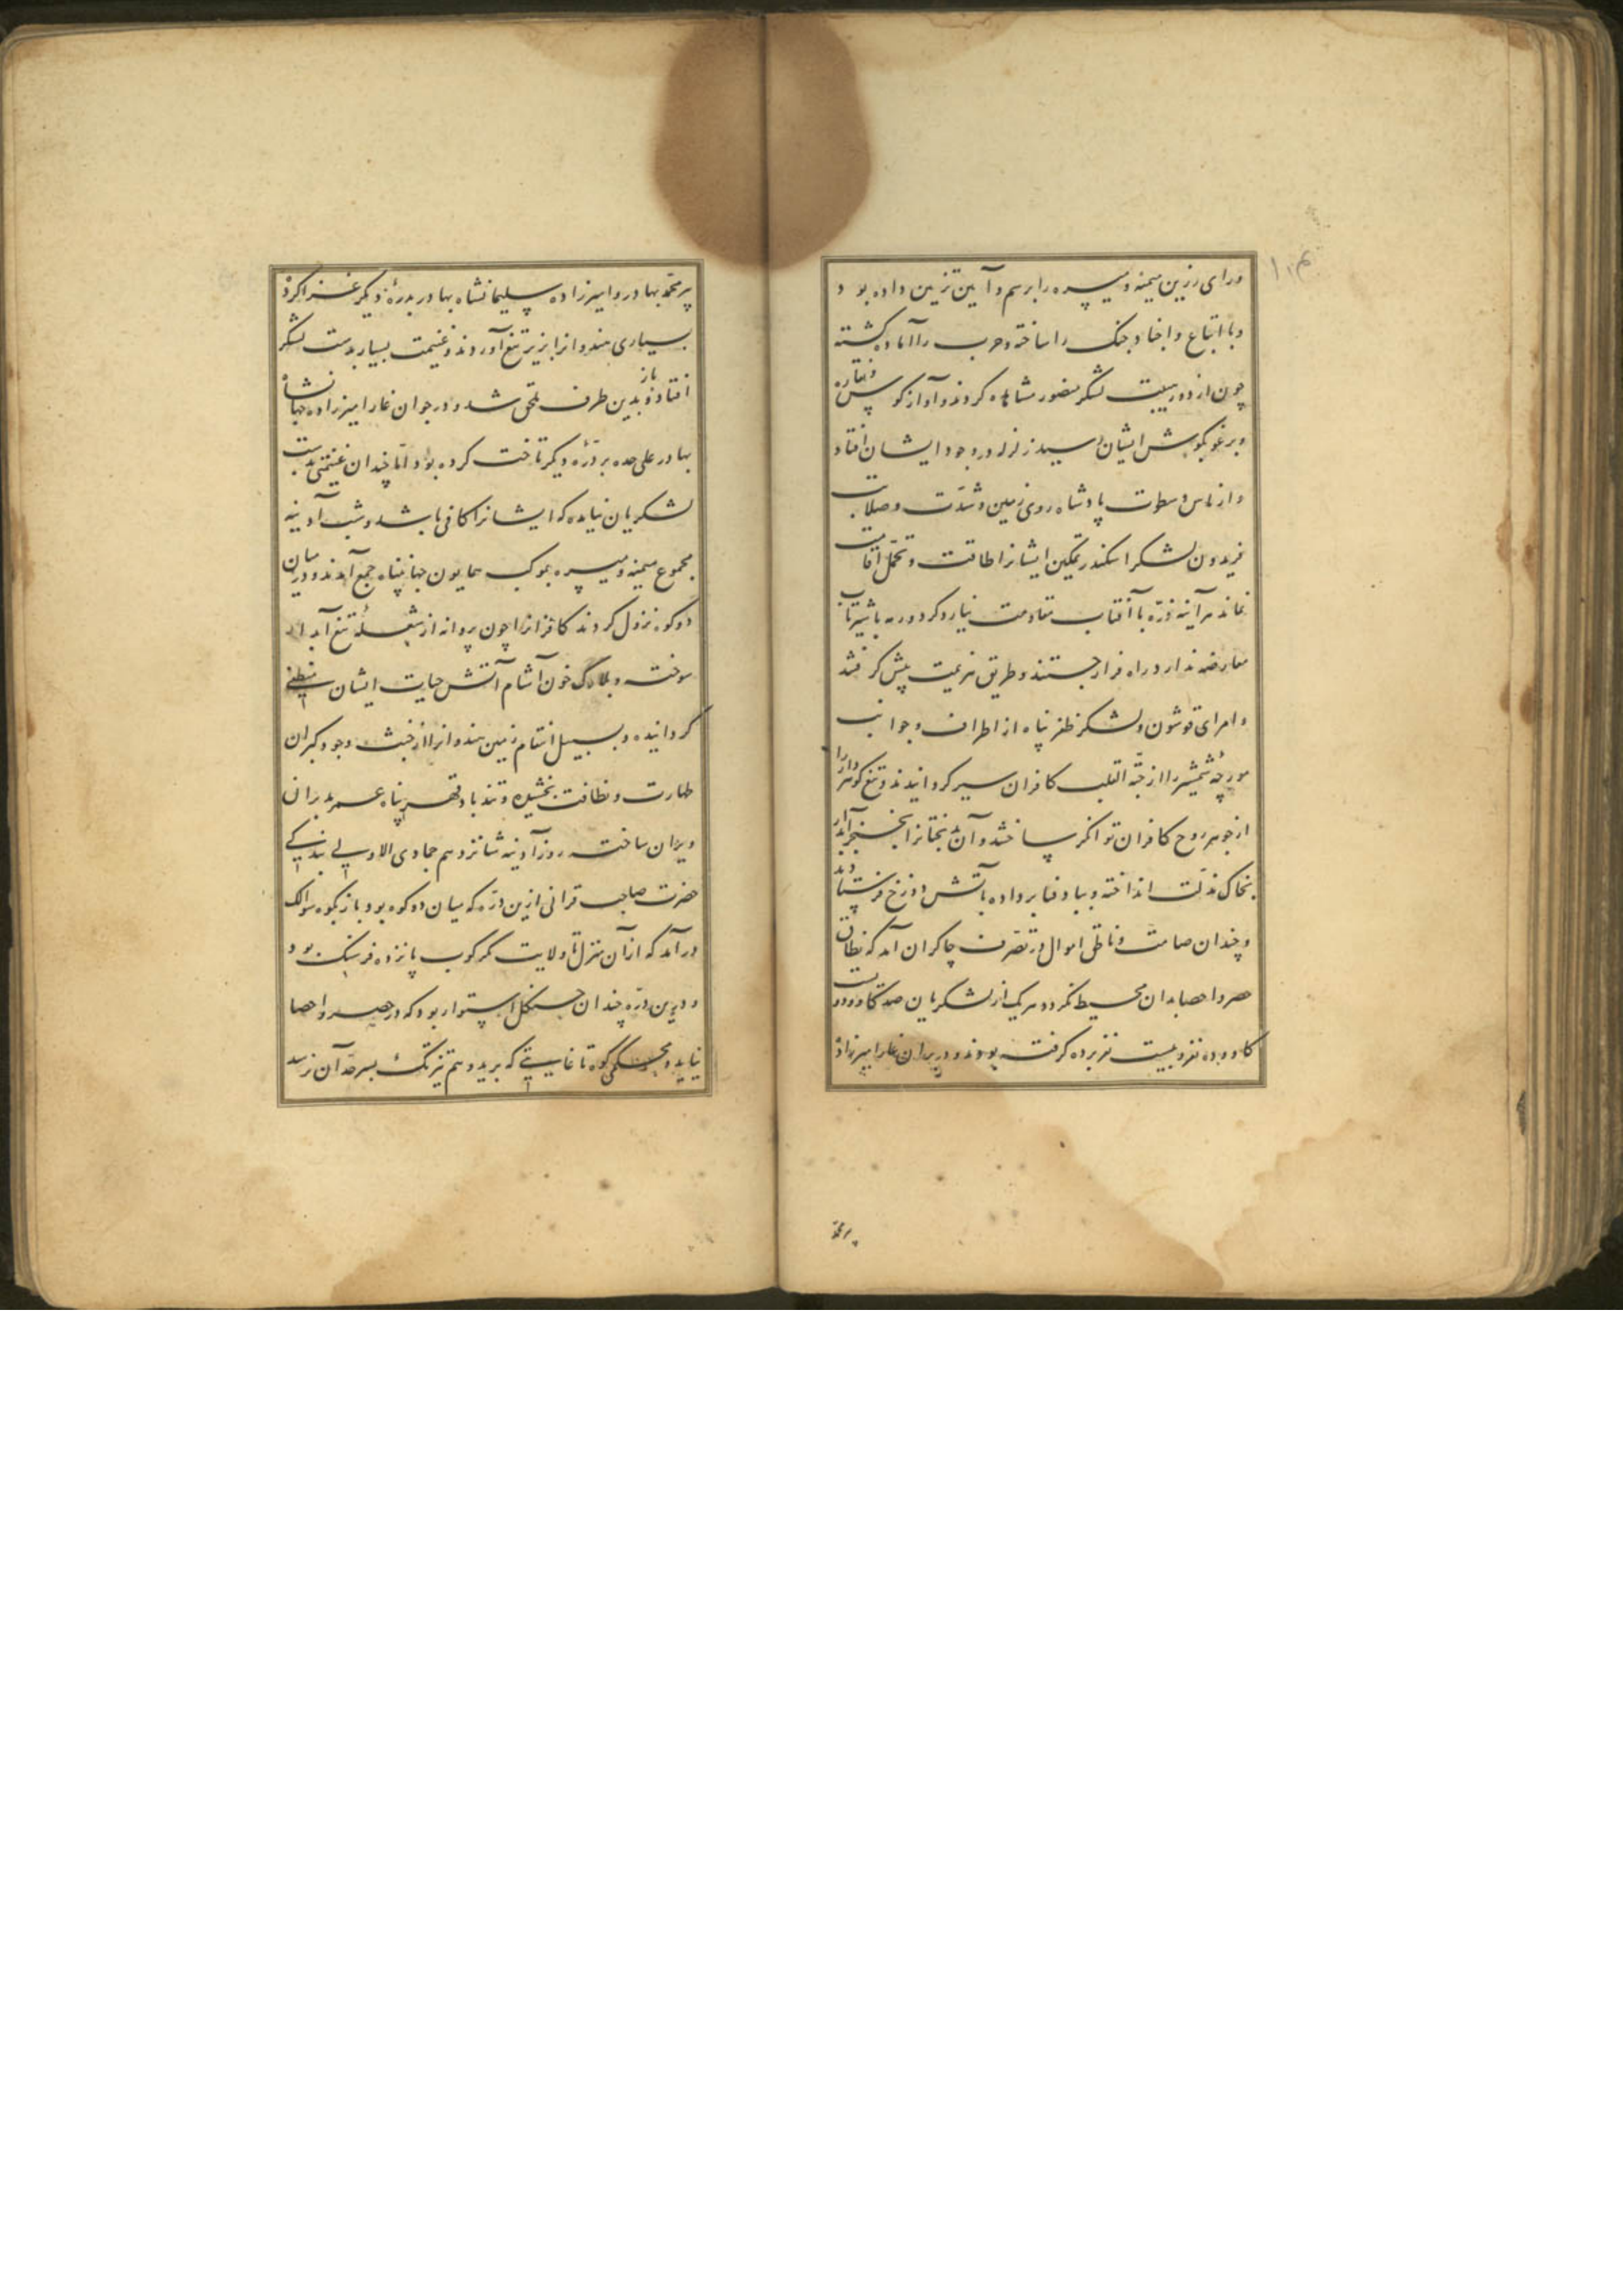 ورای رزین میمنه و میسره را برسم و آیین تزیین داده بود
و با اتباع و اجناد جنک را ساخته و حرب را آماده کشته
چون از دور هیبت لشکر منصور مشاهده کردند و آواز کوس و نقاره
و برغو بکوش ایشان رسید زلزله در وجود ایشان افتاد
و از باس و سطوت پادشاه روی زمین و شدّت و صلابت
فریدون لشکر اسکندر تمکین ایشانرا طاقت و تحمّل اقامت
نماند هرآینه ذرّه با آفتاب مقاومت نیارد کرد و ربه با شیر تاب
معارضه ندارد راه فرار جستند و طریق هزیمت پیش کرفتند
و امرای قوشون و لشکر ظفر پناه از اطراف و جوانب
مورچهٔ شمشیر را از حبّة القلب کافران سیر کردانیدند و تیغ کوهردار را
از جوهر روح کافران توانکر ساختند و آن بدبختانرا بخنجر آبدار
بخاک مذلّت انداخته و بباد فنا برداده بآتش دوزخ فرستادند
و چندان صامت و ناطق اموال در تصّرف چاکران آمد که نطاق
حصر و احصا بدان محیط نکردد هریک از لشکریان صد کاو و دویست
کاو و ده نفر و بیست نفر برده کرفته بودند و در برانغار امیرزاده
پیر محمّد
پیر محمّد بهادر و امیرزاده سلیمانشاه بهادر بدرهٔ دیکر غزا کرد
بسیاری هندوانرا بزیر تیغ آوردند و غنیمت بسیار بدست لشکر
افتاد و باز بدین طرف ملحق شد و در جوانغار امیرزاده جهانشاه
بهادر علی حده بر درّهٔ دیکر تاخت کرده بود امّا چندان غنیمتی بدست
لشکریان نیامده که ایشانرا کافی باشد و شب آدینه
مجموع میمنه و میسره بموکب همایون جهانپناه جمع آمدند و در میان
دو کوه نزول کردند کافرانرا چون پروانه از شعلهٔ تیغ آبدار
سوخته و بلارک خون آشام آتش حیات ایشان منطفی
کردانیده و بسبیل انتقام زمین هندوانرا از خبث وجود کبران
طهارت و نظافت بخشیده و تندباد قهر پناه عمر بدبران
ویران ساخته روز آدینه شانزدهم جمادی الاولی بندکی
حضرت صاحب قرانی ازین درّه که میان دو کوه بود باز بکوه سوالک
درآمد که از آن منزل تا ولایت کرکوب پانزده فرسنک بود
و درین درّه چندان جنکل استوار بود که در حصر و احصا
نیاید و محکمی کوه تا غایتی که برید وهم تیزتک بسرحدّ آن نرسد